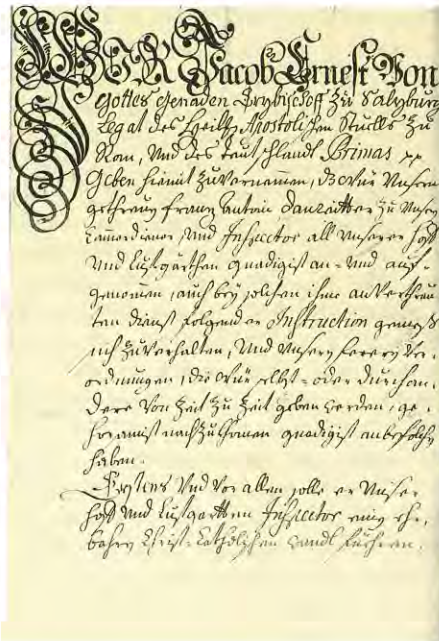 WIR Jacob Ernest Von
Gottes Genaden Erzbischoff zu Salzburg
Legat des Heilig Apostolischen Stuells zu
Rom, Und des Teutschlandt Primas xx
Geben hiemit zuvernemmen, dz wür Unsern
gethreuen Franz Antoni Danreitter zu Unsern
Cammerdiener, Und Inspector all Unserer Hoff
Und Lustgärthen gnädigist an- Und auf-
genomen, auch bey solchen ihme anverthrau-
ten dienst folgender Instruction gemess
sich zuverhalten, Und Unsern ferern Ver-
ordnungen, die wür selbst- oder durch an-
dere Von Zeit zu Zeit geben werden, ge-
horsamist nachzukhomen gnädigist anbefolchen
haben.
Erstens Und Vor allen solle er Unser
Hoff Und Lustgartten Inspector einen ehr-
bahren Christ-Catholischen wandl fuehren.